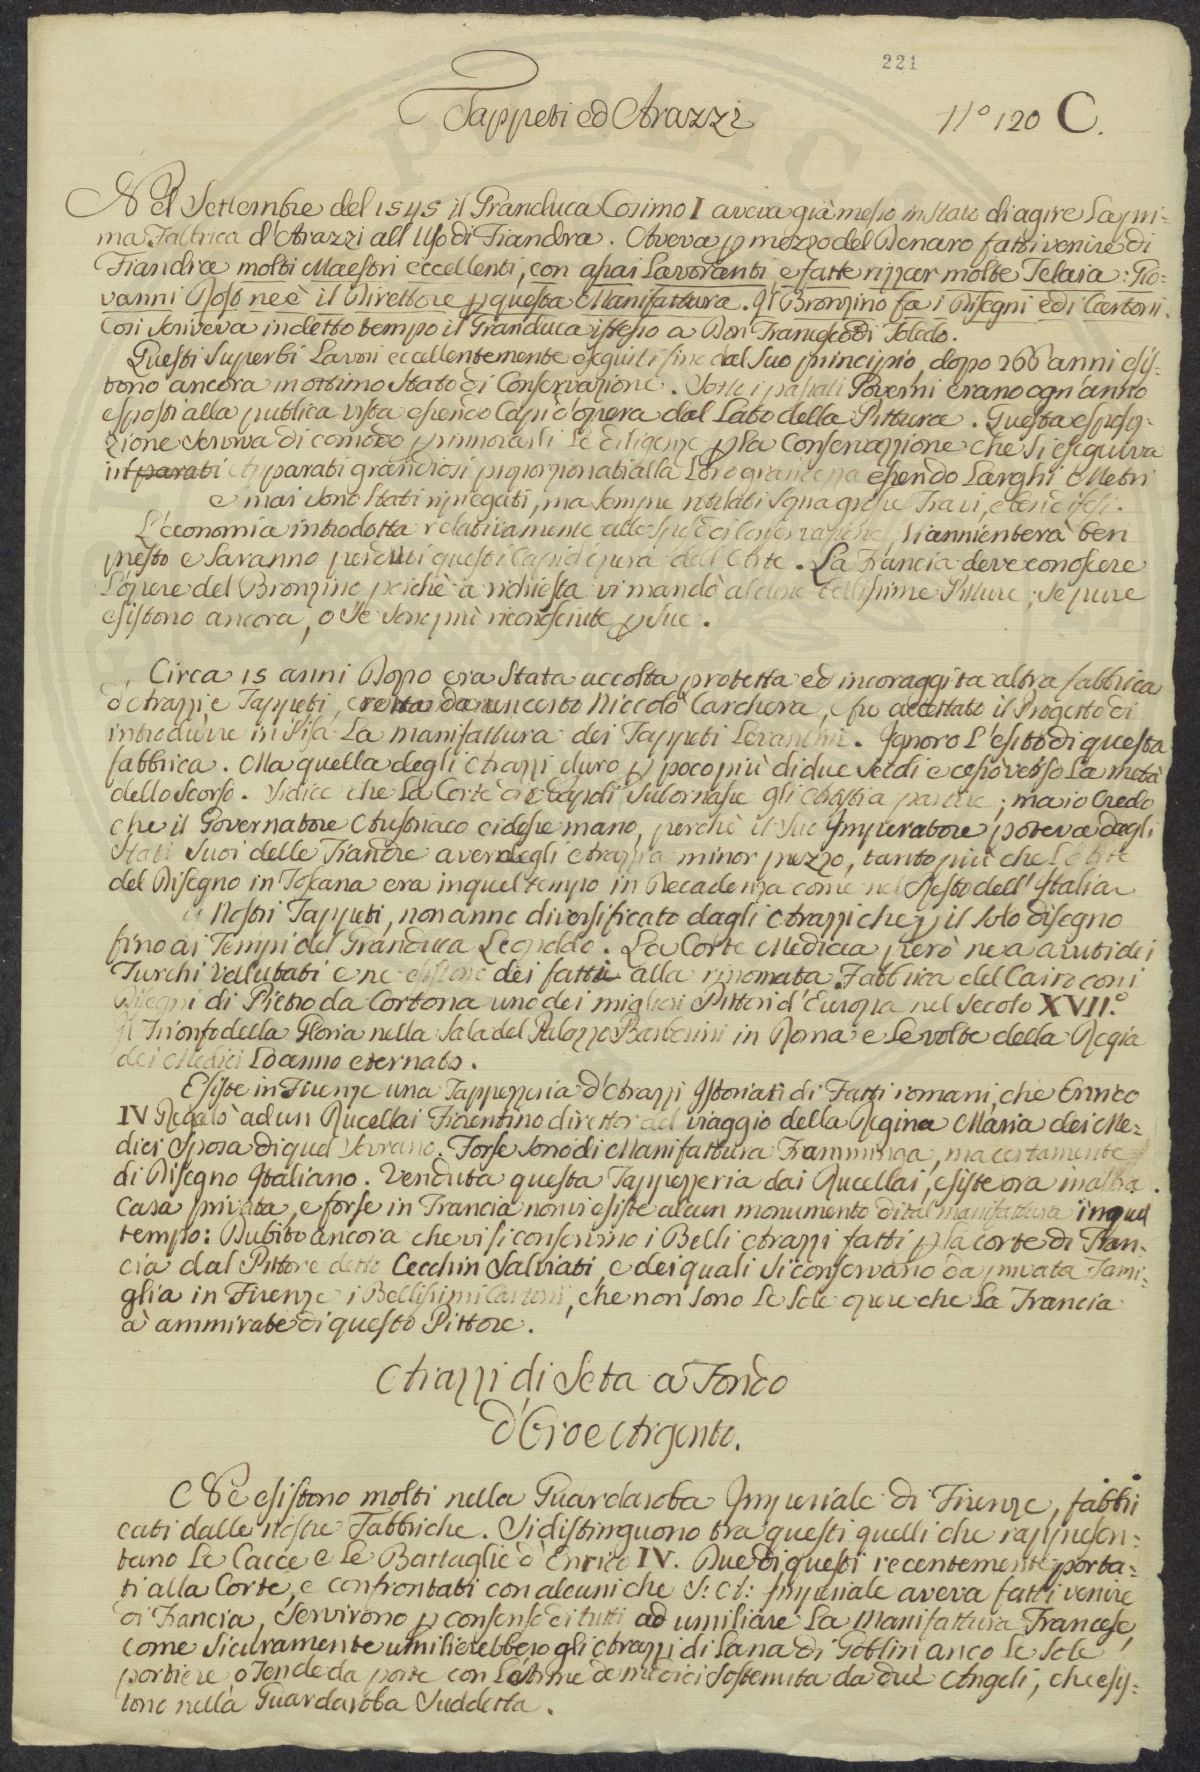 221
Tappeti ed Arazzi
N° 120 C.
Nel Settembre del 1545 il Granduca Cosimo I aveva già messo in stato di agire la pri-
ma Fabbrica d'Arazzi all'Uso di Fiandra. Aveva p mezzo del Denaro fatti venire di
Fiandra molti Maestri eccellenti, con assai Lavoranti, e fatte rizzar molte Telaia: Gio-
vanni Rost ne è il Direttore p questa Manifattura. Il Bronzino fa i Disegni ed i Cartoni.
Così scriveva in detto tempo il Granduca istesso a Don Francesco di Toledo.
Questi superbi Lavori eccellentemente eseguiti fino dal suo principio, dopo 266 anni esis-
tono ancora in ottimo stato di Conservazione. Sotto i passati Governi erano ogn'anno
esposti alla publica vista essendo Capi d'opera dal Lato della Pittura. Questa esposi-
zione serviva di comodo p rinnovarli le diligenze p la Conservazione che si eseguiva
in parati grandiosi proporzionati alla Loro grandezza essendo Larghi Metri
e mai sono stati ripiegati, ma sempre
L'economia introdotta relativamente alle spese di conservazione, li annienterà ben
presto e saranno perduti questi Capi d'opera dell'Arte. La Francia deve conoscere
L'opere del Bronzino perchè a richiesta vi mandò alcune bellissime Pitture, se pure
esistono ancora, o se sono più riconosciute p sue.
Circa 15 anni Dopo era stata accolta protetta ed incoraggita altra fabbrica
d'Arazzi, e Tappeti, eretta da un certo Niccolò Carchera, e fu accettato il Progetto di
introdurre in Pisa La manifattura dei Tappeti Levantini. Ignoro L'esito di questa
fabbrica. Ma quella degli Arazzi durò p poco più di due secoli e cessò verso La metà
dello scorso. Si dice che La Corte di Napoli subornasse gli Artisti a partire; ma io Credo
che il Governatore Austriaco ci desse mano, perchè il suo Imperatore poteva dagli
Stati suoi delle Fiandre aver degli Arazzi a minor prezzo, tanto più che L'Arte
del Disegno in Toscana era in quel tempo in Decadenza come nel Resto dell'Italia
i Nostri Tappeti, non anno diversificato dagli Arazzi che p il solo disegno
fino ai Tempi del Granduca Leopoldo. La Corte Medicea però ne a avuti dei
Turchi vellutati e ne esistono dei fatti alla rinomata Fabbrica del Cairo con i
Disegni di Pietro da Cortona uno dei migliori Pittori d'Europa nel secolo XVII.°
Il Trionfo della Gloria nella Sala del Palazzo Barberini in Roma e Le volte della Regia
dei Medici Lo anno eternato.
Esiste in Firenze una Tappezzeria d'Arazzi Istoriati di Fatti romani, che Enrico
IV Regalò ad un Rucellai Fiorentino direttor del viaggio della Regina Maria dei Me-
dici Sposa di quel Sovrano. Forse sono di Manifattura Framminga, ma certamente
di Disegno Italiano. Venduta questa Tappezzeria dai Rucellai, esiste ora in altra
Casa privata, e forse in Francia non vi esiste alcun monumento di tal manifattura in quel
tempo: Dubito ancora che vi si conservino i Belli Arazzi fatti p la corte di Fran-
cia dal Pittore detto Cecchin Salviati, e dei quali si conservano da privata Fami-
glia in Firenze i Bellissimi Cartoni, che non sono Le sole opere che La Francia
à ammirate di questo Pittore.
Arazzi di Seta a Fondo
d'Oro e Argento.
Ne esistono molti nella Guardaroba Imperiale di Firenze, fabbri
cati dalle nostre Fabbriche. Si distinguono tra questi quelli che rappresen-
tano Le Cacce e Le Battaglie d'Enrico IV. Due di questi recentemente porta-
ti alla Corte, e confrontati con alcuni che S: A: Imperiale aveva fatti venire
di Francia, servirono p consenso di tutti ad umiliare La Manifattura Francese,
come sicuramente umilierebbero gli Arazzi di Lana di Goblin anco Le sole
portiere, o Tende da porte con L'Arme de medici sostenuta da due Angeli, che esis-
tono nella Guardaroba Suddetta.